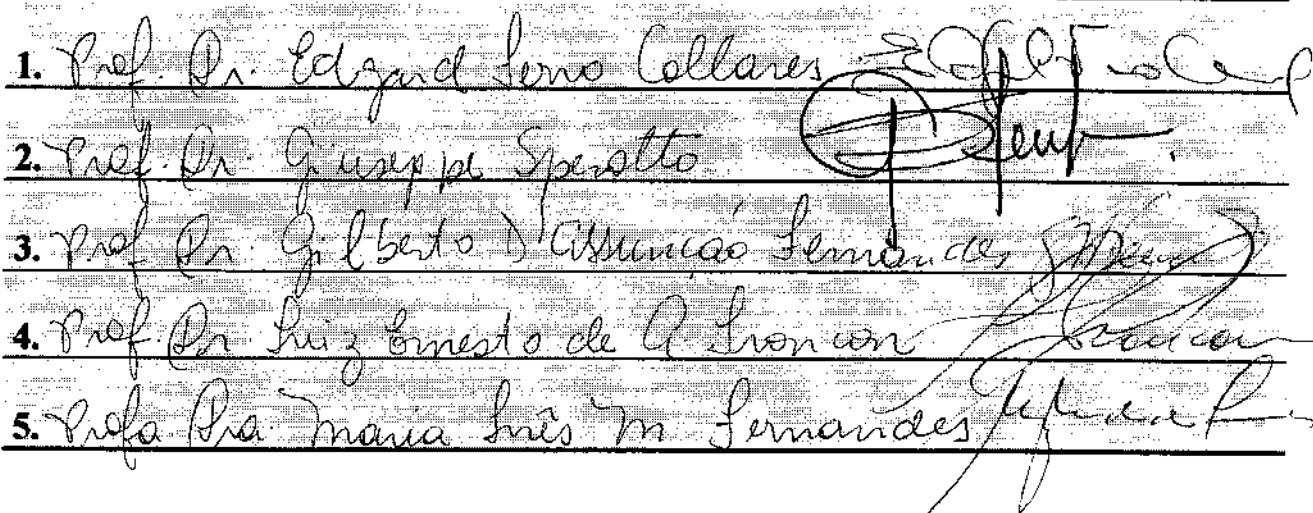 1. Prof. Dr. Edgard Ferro Collares
2. Prof. Dr. Giuseppe Sperotto
3. Prof. Dr. Gilberto D'Assunção Fernandes
4. Prof. Dr. Luiz Ernesto de A. Troncon
5. Profa Dra. Maria Inês M. Fernandes